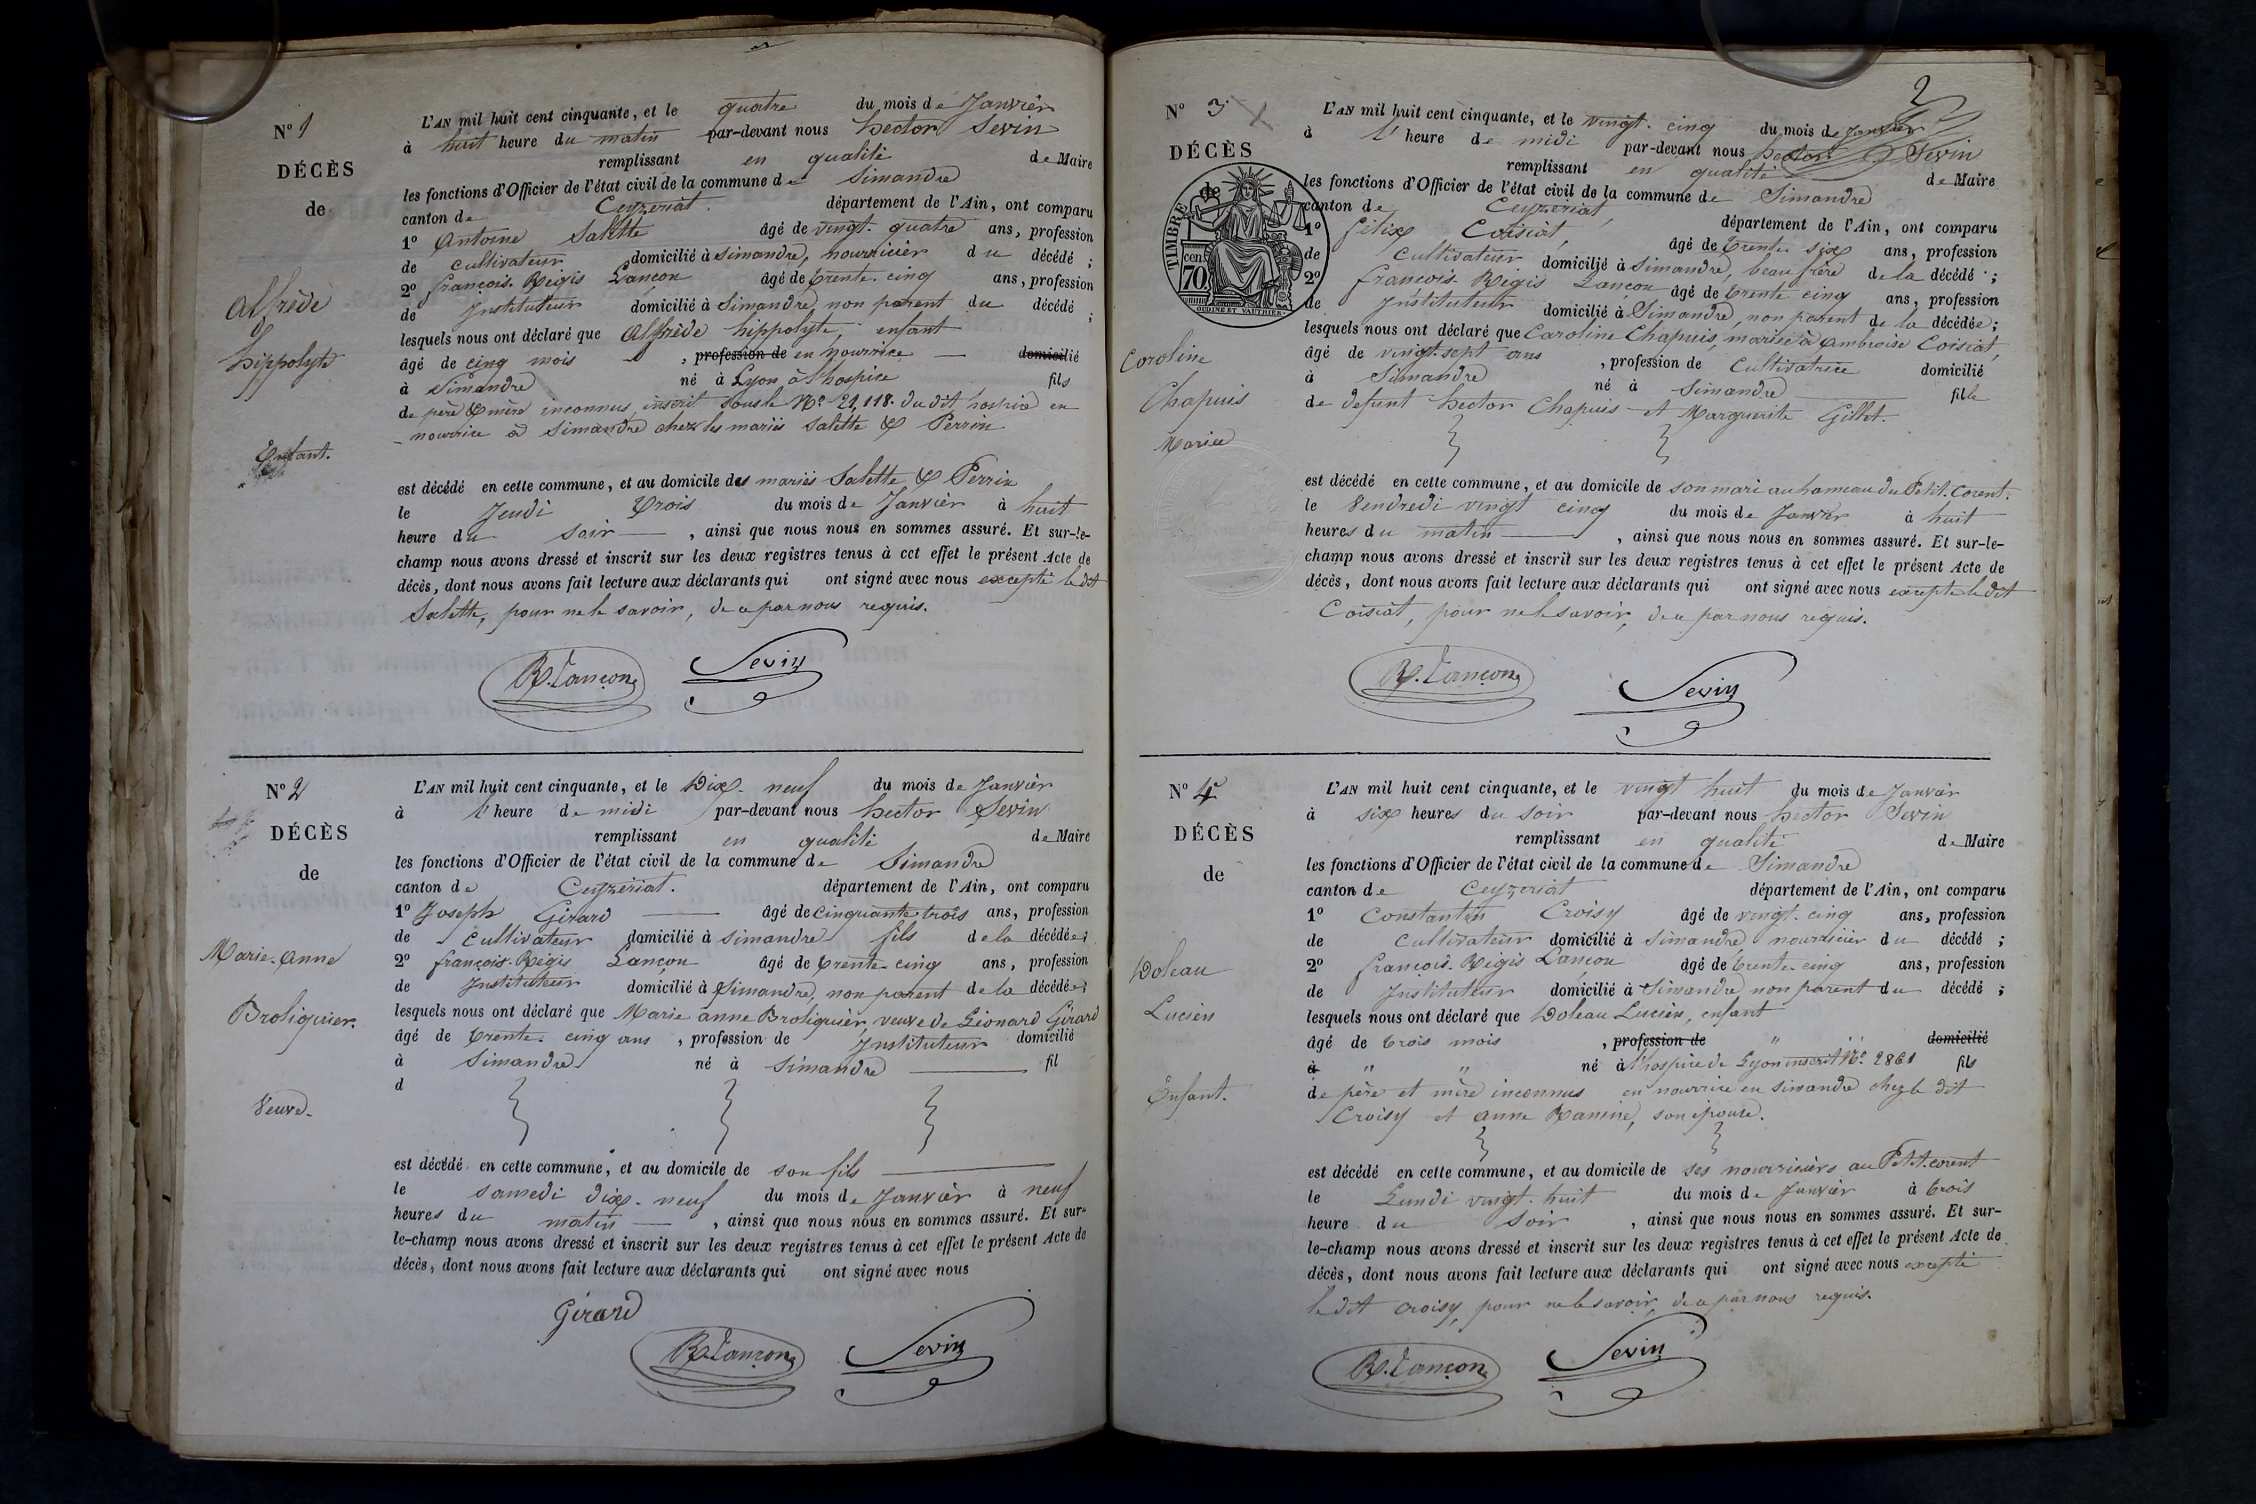 N° 1
DÉCÈS
de
Alfrède
&
hippolyte
Enfant.
L'AN mil huit cent cinquante, et le quatre du mois de Janvier
à huit heure du matin par-devant nous hector Sevin
remplissant en qualité de Maire
les fonctions d'Officier de l'état civil de la commune de Simandre
canton de Ceyzeriat. département de l'Ain, ont comparu
1° Antoine Salette âgé de vingt-quatre ans, profession
de cultivateur domicilié à Simandre, nourricier du décédé ;
2° françois-Régis Lançon âgé de trente-cinq ans, profession
de Instituteur domicilié à Simandre, non parent du décédé ;
lesquels nous ont déclaré que Alfrède hippolyte, enfant
âgé de cinq mois , profession de en nourrice — domicilié
à Simandre né à Lyon, à l'hospice fils
de père & mère inconnus, inscrit sous le N° 21,118. du dit hospice en
nourrice à Simandre chez les mariés Salette & Perrin
est décédé en cette commune, et au domicile des mariés Salette & Perrin
le Jeudi Trois du mois de Janvier à huit
heure du soir — , ainsi que nous nous en sommes assuré. Et sur-le-
champ nous avons dressé et inscrit sur les deux registres tenus à cet effet le présent Acte de
décès, dont nous avons fait lecture aux déclarants qui ont signé avec nous excepté le dit
Salette, pour ne le savoir, de ce par nous requis.
R. Lançon Sevin
N° 2
DÉCÈS
de
Marie-Anne
Broliquier.
Veuve.
L'AN mil huit cent cinquante, et le Dix-neuf du mois de Janvier
à l'heure de midi par-devant nous hector Sevin
remplissant en qualité de Maire
les fonctions d'Officier de l'état civil de la commune de Simandre
canton de Ceyzériat. département de l'Ain, ont comparu
1° Joseph Girard — âgé de cinquante-trois ans, profession
de cultivateur domicilié à Simandre fils de la décédée ;
2° françois-Régis Lançon âgé de trente-cinq ans, profession
de Instituteur domicilié à Simandre, non parent de la décédée ;
lesquels nous ont déclaré que Marie anne Broliquier, veuve de Léonard Girard
âgé de trente-cinq ans , profession de Instituteur domicilié
à Simandre né à Simandre — fil
d
est décédé en cette commune, et au domicile de son fils —
le samedi dix-neuf du mois de Janvier à neuf
heures du matin — , ainsi que nous nous en sommes assuré. Et sur-
le-champ nous avons dressé et inscrit sur les deux registres tenus à cet effet le présent Acte de
décès, dont nous avons fait lecture aux déclarants qui ont signé avec nous
Girard
R. Lançon Sevin
2
N° 3
DÉCÈS
de
TIMBRE
70 cen
OUDINE ET VAUTHIER.
Caroline
Chapuis
Mariée
L'AN mil huit cent cinquante, et le vingt-cinq du mois de Janvier
à l'heure de midi par-devant nous hector Sevin
remplissant en qualité de Maire
les fonctions d'Officier de l'état civil de la commune de Simandre
canton de Ceyzeriat, département de l'Ain, ont comparu
1° félix Coisiat, âgé de trente-six ans, profession
de cultivateur domicilié à Simandre, beau frère de la décédé ;
2° françois-Régis Lançon âgé de trente cinq ans, profession
de Instituteur domicilié à Simandre, non parent de la décédée ;
lesquels nous ont déclaré que Caroline Chapuis, mariée à Ambroise Coisiat,
âgé de vingt-sept ans , profession de Cultivatrice domicilié
à Simandre né à Simandre — fille
de defunt hector Chapuis et Marguerite Gillet.
est décédé en cette commune, et au domicile de son mari au hameau du Petit-Corent.
le Vendredi vingt cinq du mois de Janvier à huit
heures du matin — , ainsi que nous nous en sommes assuré. Et sur-le-
champ nous avons dressé et inscrit sur les deux registres tenus à cet effet le présent Acte de
décès, dont nous avons fait lecture aux déclarants qui ont signé avec nous excepté le dit
Coisiat, pour ne le savoir, de ce par nous requis.
R. Lançon Sevin
N° 4
DÉCÈS
de
Doleau
Lucien
Enfant.
L'AN mil huit cent cinquante, et le vingt huit du mois de Janvier
à six heures du soir par-devant nous hector Sevin
remplissant en qualité de Maire
les fonctions d'Officier de l'état civil de la commune de Simandre
canton de Ceyzeriat département de l'Ain, ont comparu
1° Constantin Croisy âgé de vingt-cinq ans, profession
de cultivateur domicilié à Simandre, nourricier du décédé ;
2° françois-Régis Lançon âgé de trente-cinq ans, profession
de Instituteur domicilié à Simandre non parent du décédé ;
lesquels nous ont déclaré que Doleau Lucien, enfant
âgé de trois mois , profession de " domicilié
à " " né à l'hospice de Lyon inscrit N° 2861 fils
de père et mère inconnus en nourrice en Simandre chez le dit
Croisy et anne Ramine, son épouse.
est décédé en cette commune, et au domicile de ses nourriciers au Petit-corent
le Lundi vingt-huit du mois de Janvier à trois
heure du soir , ainsi que nous nous en sommes assuré. Et sur-
le-champ nous avons dressé et inscrit sur les deux registres tenus à cet effet le présent Acte de
décès, dont nous avons fait lecture aux déclarants qui ont signé avec nous excepté
le dit Croisy, pour ne le savoir, de ce par nous requis.
R. Lançon Sevin